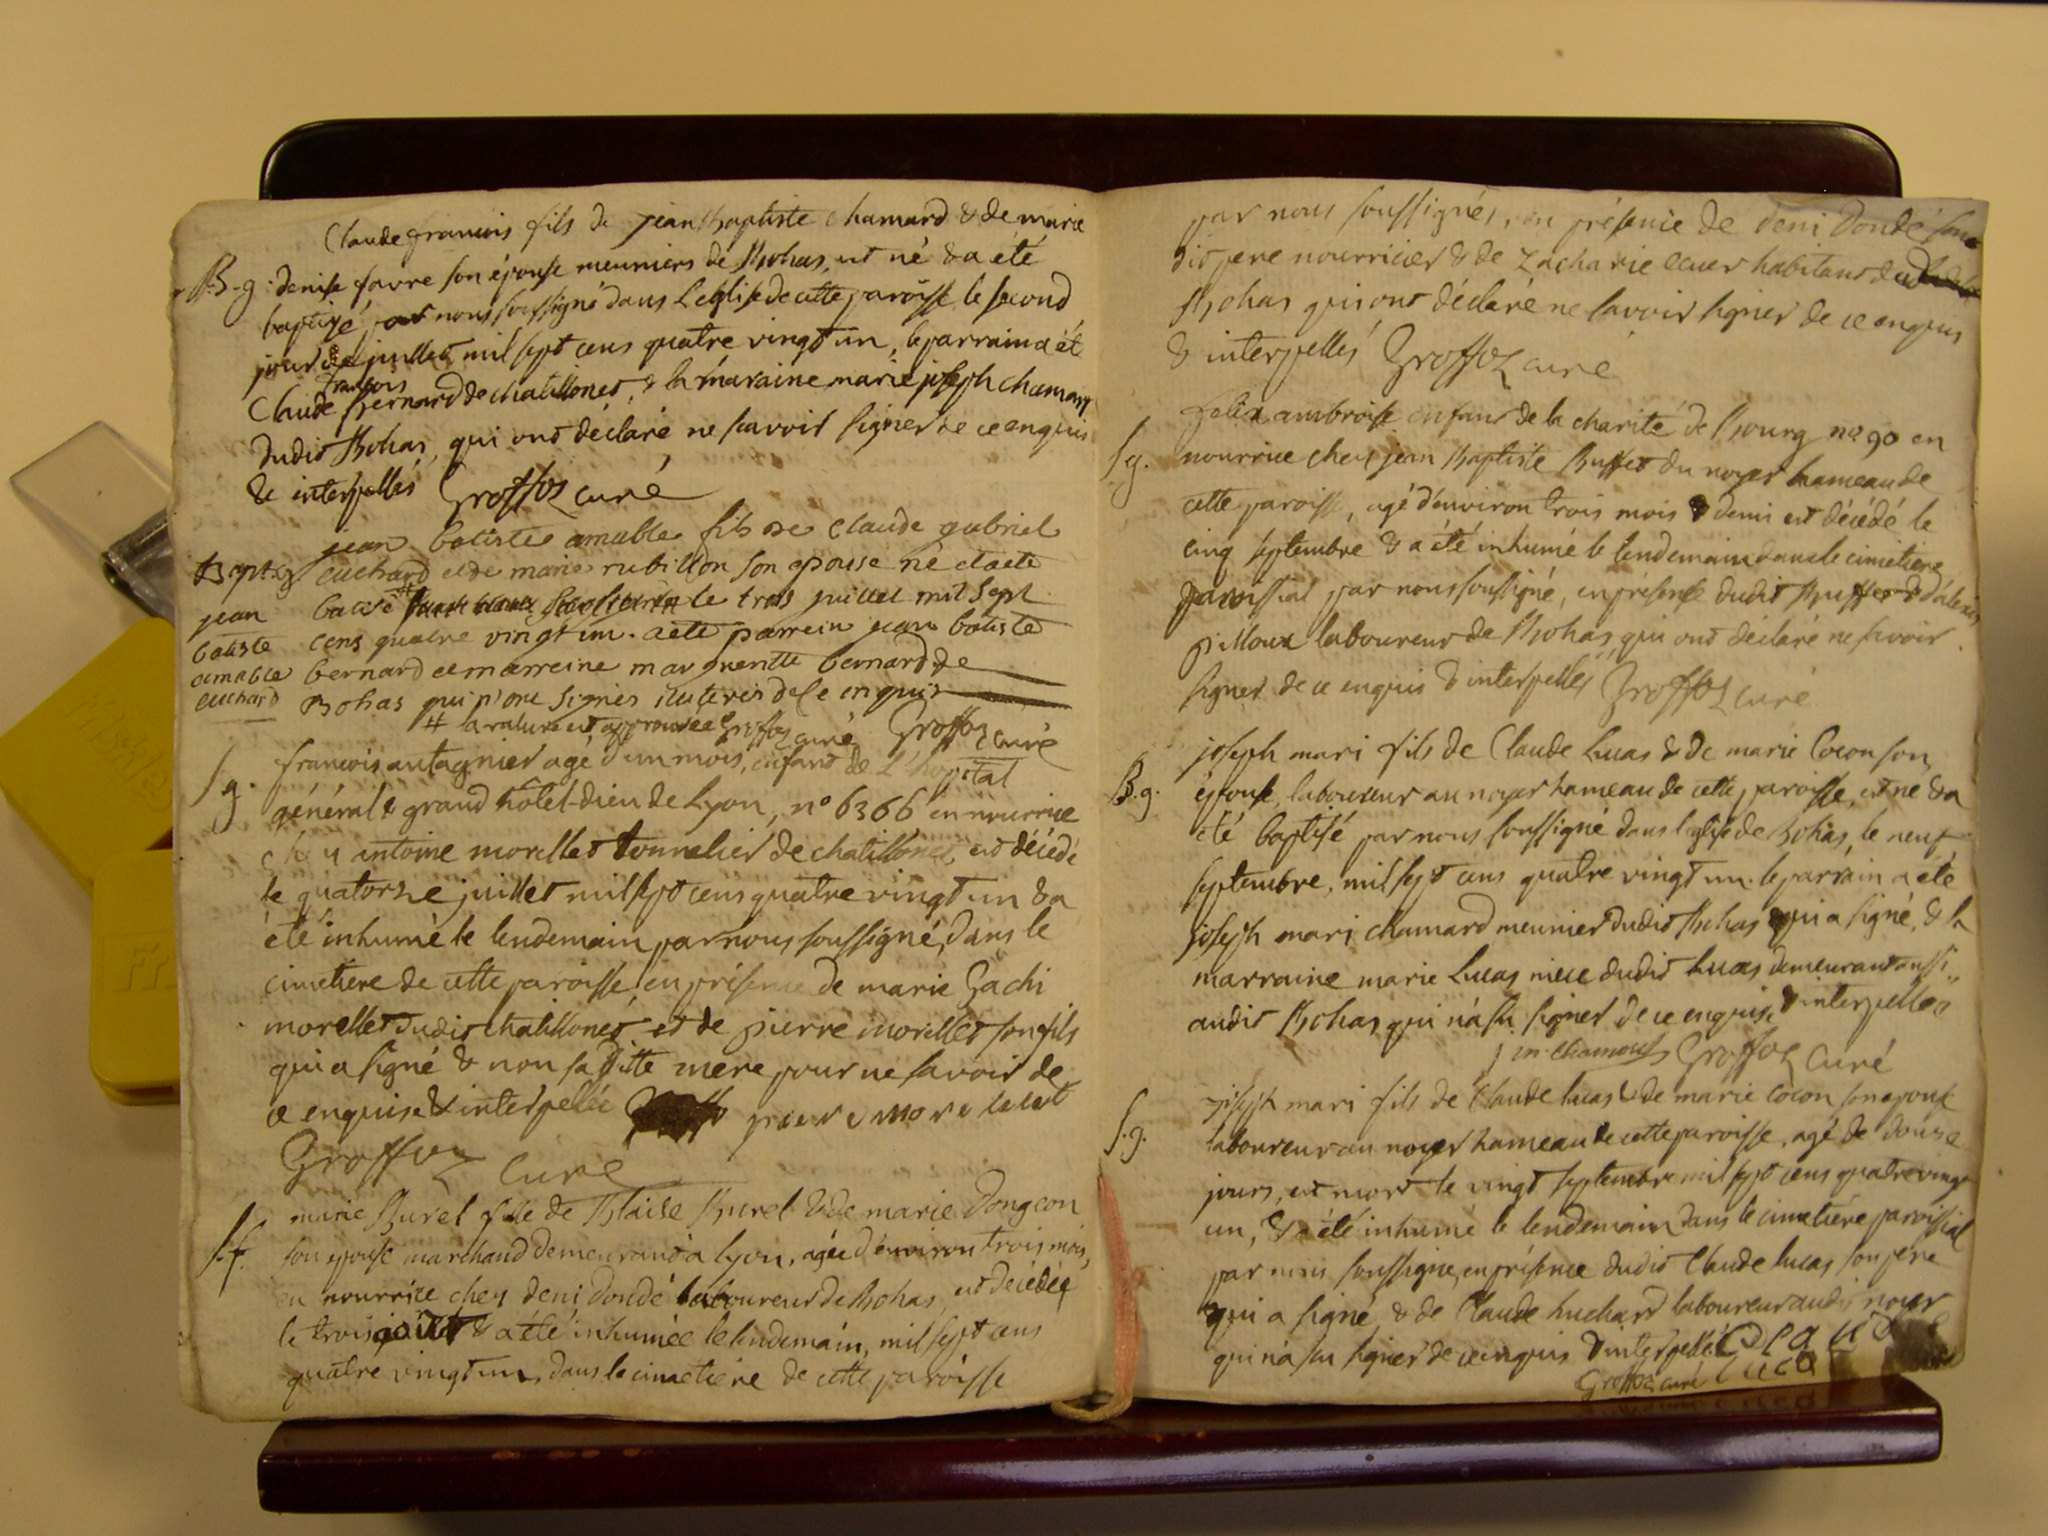 Claude francois fils de jean Baptiste chamard & de marie
B.g. denise favre son épouse meuniers de Bohas, est né & a été
baptizé par nous soussigné dans L'eglise de cette paroisse le second
jour de juillet mil sept cens quatre vingt un, le parrain a été
francois
Claude Bernard de chatillonet, & la maraine marie joseph chamard
dudit Bohas, qui ont déclaré ne scavoir signer de ce enquis
& interpellés Groffoz curé
jean batiste amable fils de claude gabriel
Bapt. g euchard et de marie rubillon son epouse né et aete
jean batisé le trois juillet mil sept
batiste cens quatre vingt un. aete parrein jean batiste
amable bernard et marreine margueritte bernard de
euchard Bohas qui n'ont signés illiteres de ce enquis
# la rature est approuvée Groffoz curé Groffoz curé
S.g. francois antagnier agé d'un mois, enfant de L'hopital
général & grand hôtel-dieu de Lyon, n° 6366 en nourrice
chez antoine morellet tonnelier de chatillonet, est décédé
le quatorze juillet mil sept cens quatre vingt un & a
été inhumé le lendemain par nous soussigné, dans le
cimetiere de cette paroisse en présence de marie Gachi
morellet dudit chatillonet et de pierre morellet son fils
qui a signé & non sa ditte mere pour ne savoir de
ce enquise & interpellée piere morellet
Groffoz curé
marie Burel fille de Blaise Burel & de marie Dongeon
S.f. son epouse marchand demeurant à Lyon, agée d'environ trois mois,
en nourrice chez deni Dondé laboureur de Bohas, est décédée
le trois août & a été inhumée le lendemain, mil sept cens
quatre vingt un, dans le cimetiere de cette paroisse
par nous soussignés, en présence de deni Dondé son
dit pere nourricier & de Zacharie ecuer habitans dud
Bohas qui ont déclaré ne savoir signer de ce enquis
& interpellés Groffoz curé
felix ambroise enfant de la charité de Bourg n° 90 en
S.g. nourrice chez jean Baptiste Buffet du noyer hameau de
cette paroisse, agé d'environ trois mois & demi est décédé le
cinq septembre & a été inhumé le lendemain dans le cimetiere
paroissial par nous soussigné, en présence dudit Buffet & d'alexis
pilloux laboureur de Bohas, qui ont déclaré ne savoir
signer de ce enquis & interpellés Groffoz curé
joseph mari fils de Claude Lucas & de marie Cocon son
B.g. épouse, laboureur au noyer hameau de cette paroisse, est né & a
été baptisé par nous soussigné dans l'eglise de Bohas, le neuf
septembre, mil sept cens quatre vingt un. le parrain a été
joseph mari chamard meunier dudit Bohas qui a signé, & la
marraine marie Lucas niece dudit Lucas demeurant aussi
audit Bohas qui n'a su signer de ce enquise & interpellée
j m chamard Groffoz curé
joseph mari fils de Claude lucas & de marie cocon son epouse
S.g. laboureur au noyer hameau de cette paroisse, agé de douze
jours, est mort le vingt septembre mil sept cens quatre vingt
un, & a été inhumé le lendemain dans le cimetiére paroissial
par nous soussigné, en présence dudit Claude lucas son pere
qui a signé, & de Claude huchard laboureur audit noyer
qui n'a su signer de ce enquis & interpellé. Claude
Groffoz curé Luca